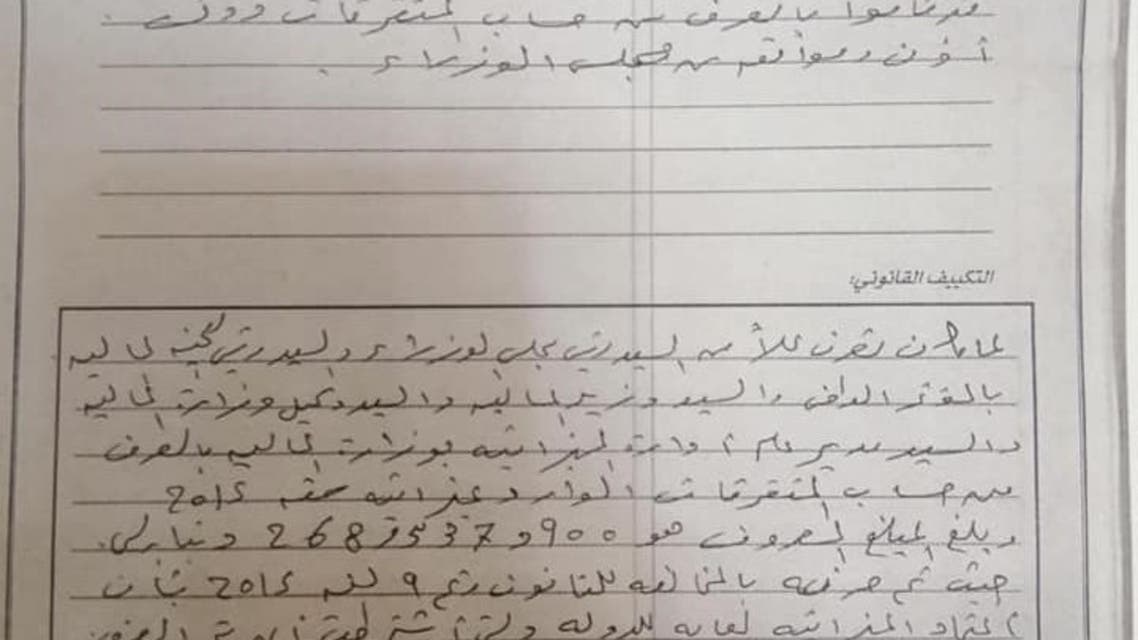 قد قاموا بالصرف من حساب المتفرقات دون
أذن وموافقه من مجلس الوزراء .
التكييف القانوني:
لما كان تصرف كلاً من السيد رئيس مجلس الوزراء والسيد رئيس لجنة المالية
بالمؤتمر الوطني والسيد وزير المالية والسيد وكيل وزارة المالية
والسيد مدير عام ادارة الميزانيه بوزارة المالية بالصرف
من حساب المتفرقات الوارد بميزانيه سنه 2015
وبلغ المبلغ المصروف هو 268,537,900 دينار
حيث تم صرفه بالمخالفه للقانون رقم 9 لسنه 2015 بشأن
اعتماد الميزانيه العامه للدولة